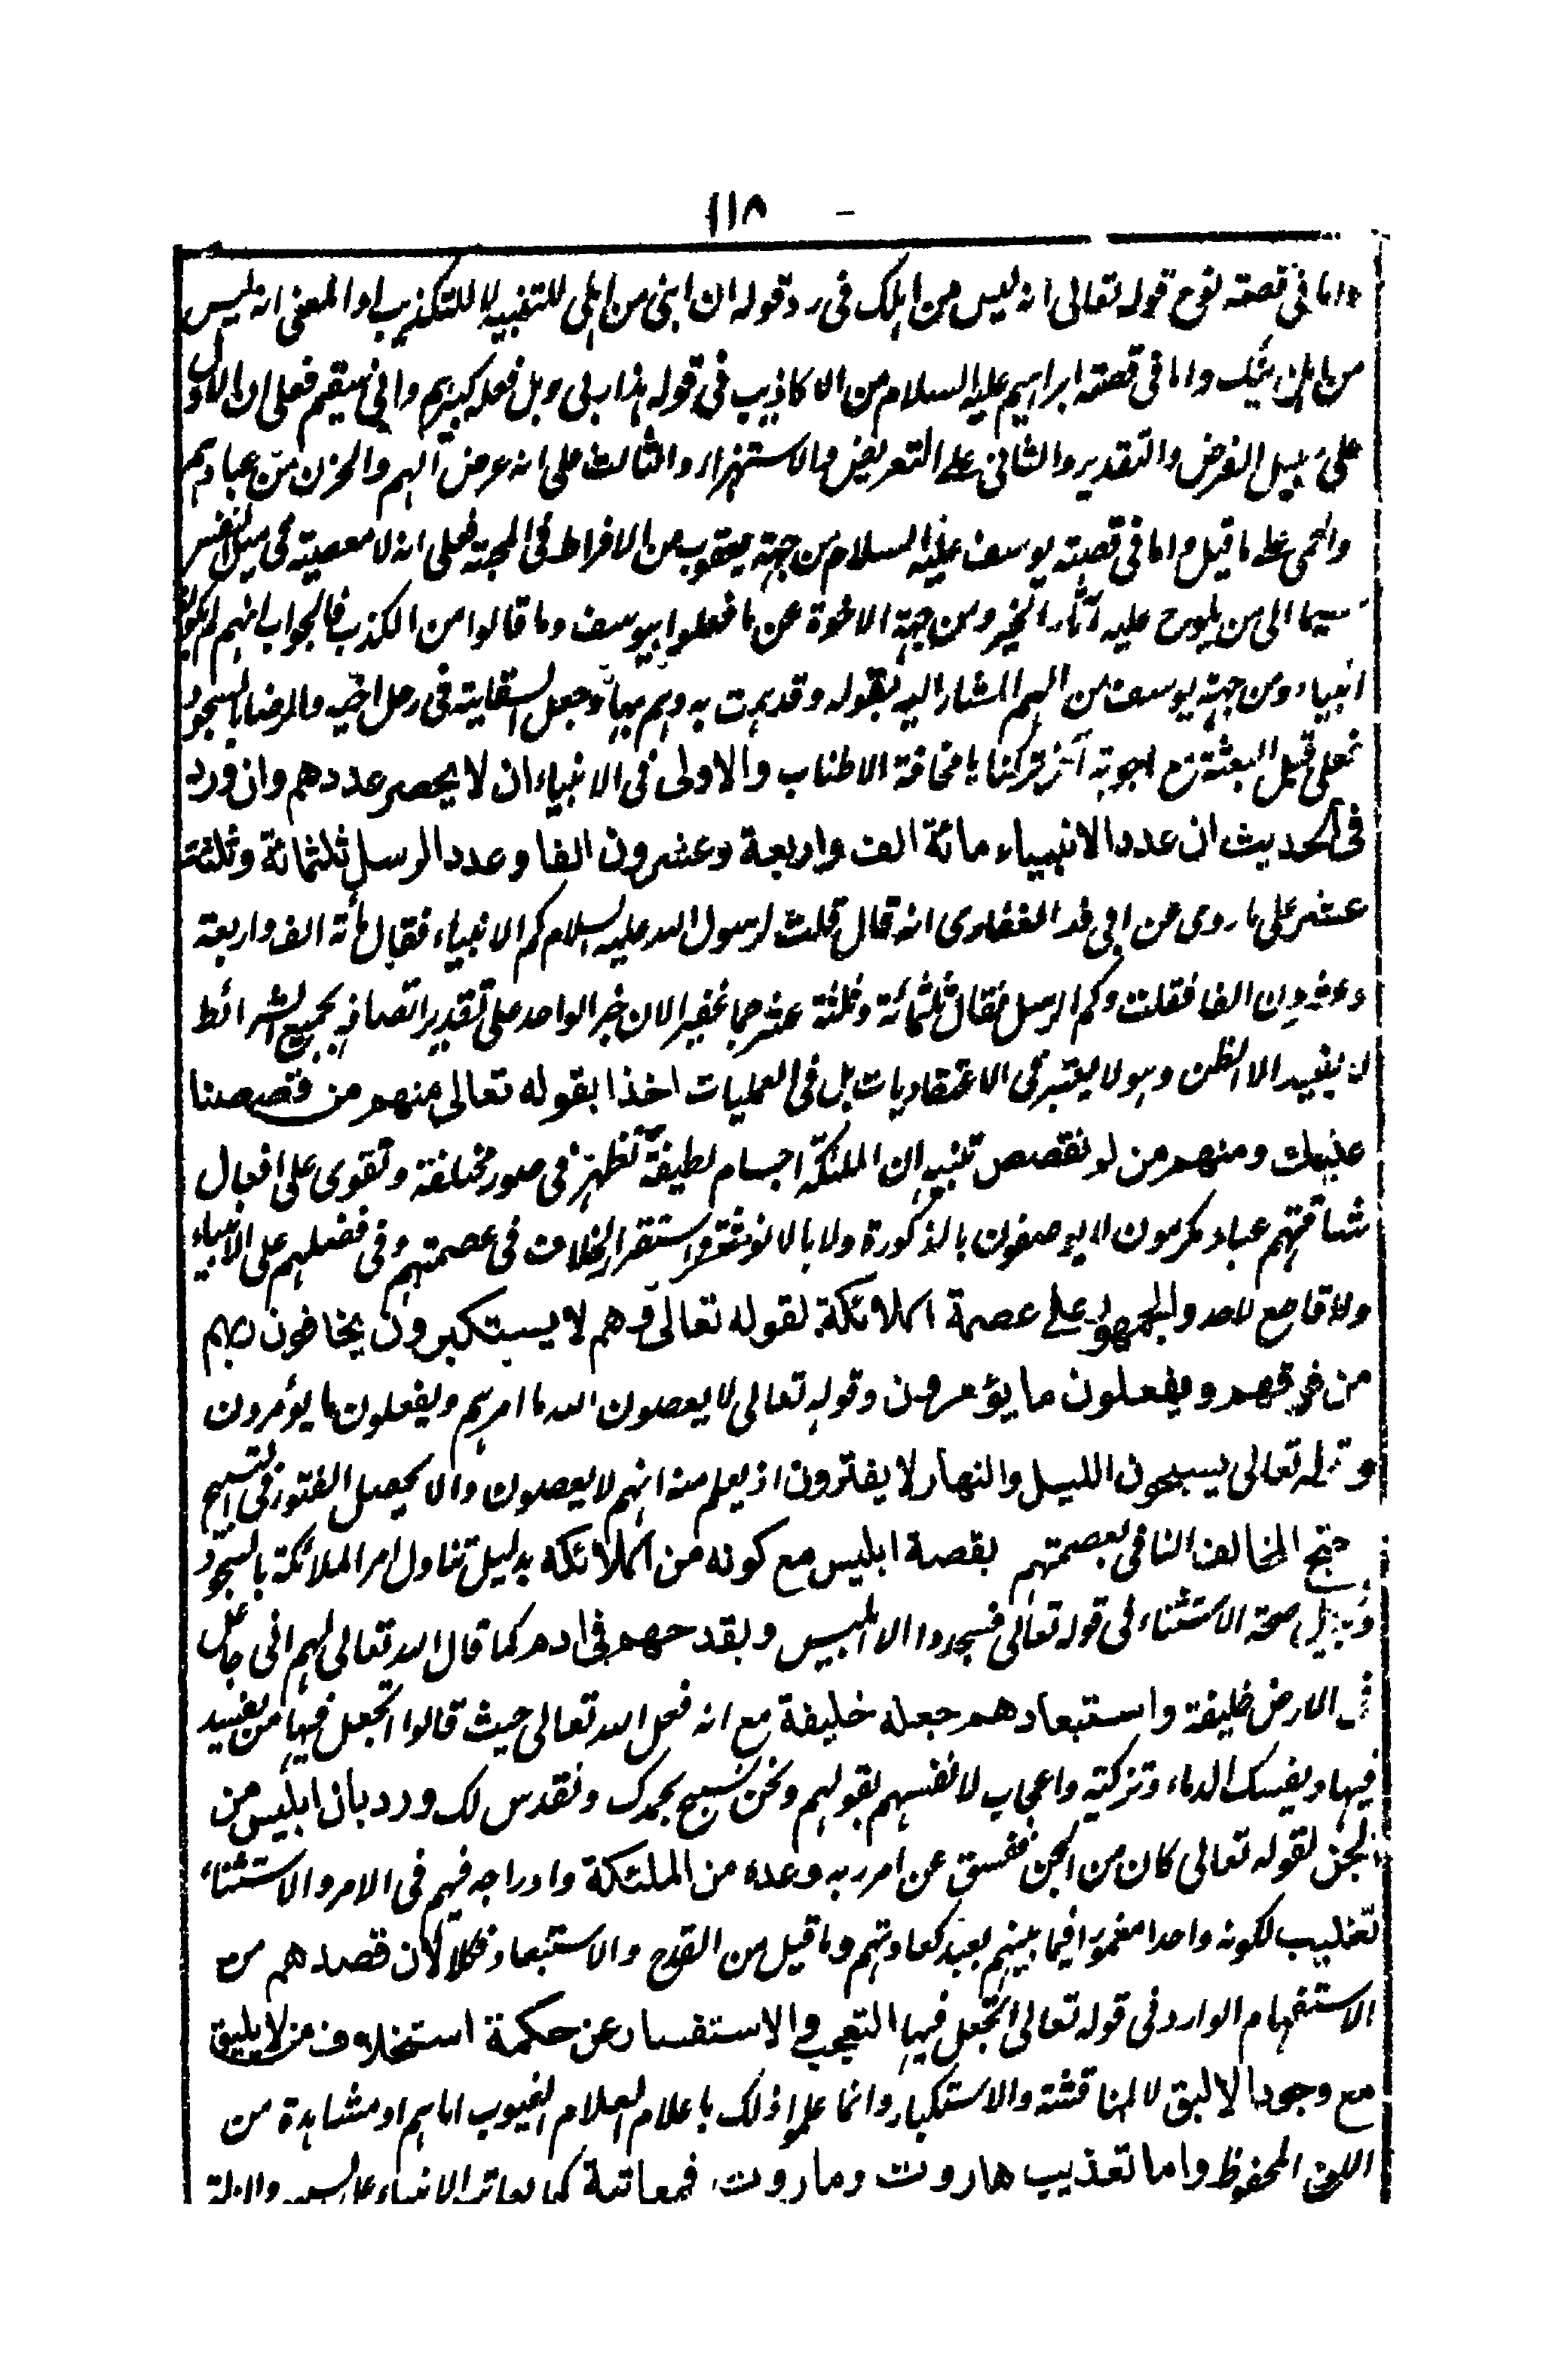 ١١٨
واما فى قصة نوح قوله تعالى انه ليس من اهلك فى رد قوله ان ابنى من اهلى للتنبيه لا للتكذيب او المعنى انه ليس
من اهل دينك واما فى قصة ابراهيم عليه السلام من الاكاذيب فى قوله هذا ربى وبل فعله كبيرهم وانى سقيم فعلى ان الاول
على سبيل الفرض والتقدير والثانى على التعريض والاستهزاء والثالث على انه عرض الهم والحزن من عبادتهم
والحمى على ما قيل واما فى قصة يوسف عليه السلام من جهة يعقوب من الافراط فى المحبة فعلى انه لا معصية فى ميل النفس
سيما الى من يلوح عليه آثار الخير ومن جهة الاخوة عن ما فعلوا بيوسف وما قالوا من الكذب فالجواب انهم لم يكونوا
انبياء ومن جهة يوسف من الهم المشار اليه بقوله وقد همت به وهم بها وجعل السقاية فى رحل اخيه والرضا بالسجود
فعلى قبل البعثة مع اجوبة آخر تركناها مخافة الاطناب والاولى فى الانبياء ان لا يحصر عددهم وان ورد
فى الحديث ان عدد الانبياء مائة الف واربعة وعشرون الفا وعدد الرسل ثلثمائة وثلثة
عشر على ما روى عن ابى ذر الغفارى انه قال قلت لرسول الله عليه السلام كم الانبياء فقال مأة الف واربعة
وعشرون الفا فقلت وكم الرسل فقال ثلثمائة وثلثة عشر جما غفيرا لان خبر الواحد على تقدير اتصافه بجميع الشرائط
لا يفيد الا الظن وهو لا يعتبر فى الاعتقاديات بل فى العمليات اخذا بقوله تعالى منهم من قصصنا
عليك ومنهم من لم نقصص تنبيه ان الملئكة اجسام لطيفة تظهر فى صور مختلفة وتقوى على افعال
شاقة هم عباد مكرمون لا يوصفون بالذكورة ولا بالانوثة واستقر الخلاف فى عصمتهم وفى فضلهم على الانبياء
ولا قاطع لاحد والجمهور على عصمة الملائكة لقوله تعالى وهم لا يستكبرون يخافون ربهم
من فوقهم ويفعلون ما يؤمرون وقوله تعالى لا يعصون الله ما امرهم ويفعلون ما يؤمرون
وقوله تعالى يسبحون الليل والنهار لا يفترون اذ يعلم منه انهم لا يعصون والا يحصل الفتور فى التسبيح
حتج المخالف النافى لعصمتهم بقصة ابليس مع كونه من الملائكة بدليل تناول امر الملائكة بالسجود
وبدليل صحة الاستثناء فى قوله تعالى فسجدوا الا ابليس وبقدحهم فى ادم كما قال الله تعالى لهم انى جاعل
فى الارض خليفة واستبعادهم جعله خليفة مع انه فعل الله تعالى حيث قالوا اتجعل فيها من يفسد
فيها ويفسك الدماء وتزكية واعجاب لانفسهم بقولهم ونحن نسبح بحمدك ونقدس لك ورد بان ابليس من
الجن لقوله تعالى كان من الجن ففسق عن امر ربه وعده من الملئكة وادراجه فيهم فى الامر والاستثناء
تغليب لكونه واحدا مغمورا فيما بينهم بعبد كعادتهم وما قيل من القدح والاستبعاد فكلا لان قصدهم من
الاستفهام الوارد فى قوله تعالى اتجعل فيها التعجب والاستفسار عن حكمة استخلاف من لا يليق
مع وجود الاليق لا المناقشة والاستكبار وانما علموا ذلك باعلام العلام الغيوب اياهم او مشاهدة من
اللوح المحفوظ واما تعذيب هاروت وماروت فمعاتبة كما يعاتب الانبياء على السهو والزلة